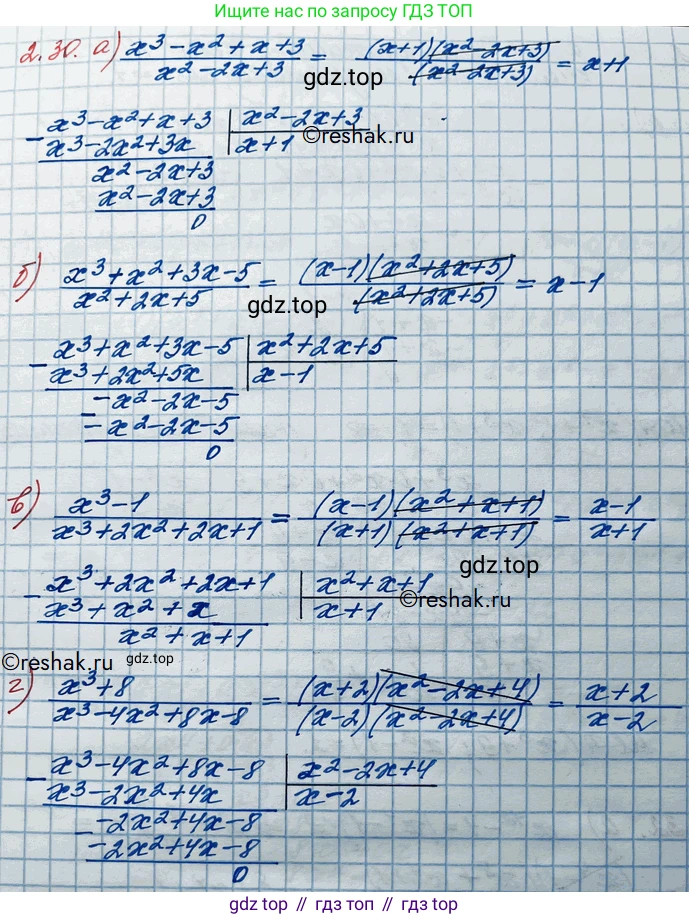 Ищите нас по запросу ГДЗ ТОП
2.30. а) x³-x²+x+3 / x²-2x+3 = (x+1)(x²-2x+3) / (x²-2x+3) = x+1
gdz.top
- x³-x²+x+3 | x²-2x+3
x³-2x²+3x | x+1
©reshak.ru
x²-2x+3
x²-2x+3
0
б) x³+x²+3x-5 / x²+2x+5 = (x-1)(x²+2x+5) / (x²+2x+5) = x-1
gdz.top
- x³+x²+3x-5 | x²+2x+5
x³+2x²+5x | x-1
- -x²-2x-5
-x²-2x-5
0
в) x³-1 / x³+2x²+2x+1 = (x-1)(x²+x+1) / (x+1)(x²+x+1) = x-1 / x+1
gdz.top
- x³+2x²+2x+1 | x²+x+1
x³+x²+x | x+1
©reshak.ru
x²+x+1
©reshak.ru
gdz.top
г) x³+8 / x³-4x²+8x-8 = (x+2)(x²-2x+4) / (x-2)(x²-2x+4) = x+2 / x-2
- x³-4x²+8x-8 | x²-2x+4
x³-2x²+4x | x-2
- -2x²+4x-8
-2x²+4x-8
0
gdz.top // гдз топ // gdz.top // гдз топ // gdz.top